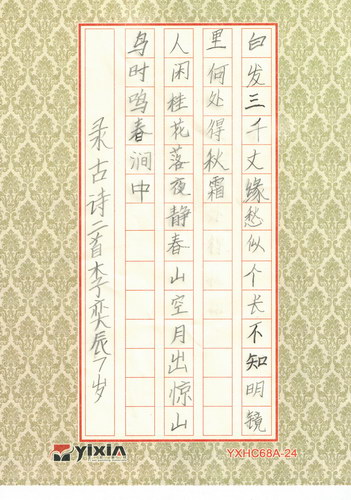 白发三千丈缘愁似个长不知明镜
里何处得秋霜
人闲桂花落夜静春山空月出惊山
鸟时鸣春涧中
录古诗二首李奕辰7岁
YIXIN
YXHC68A-24